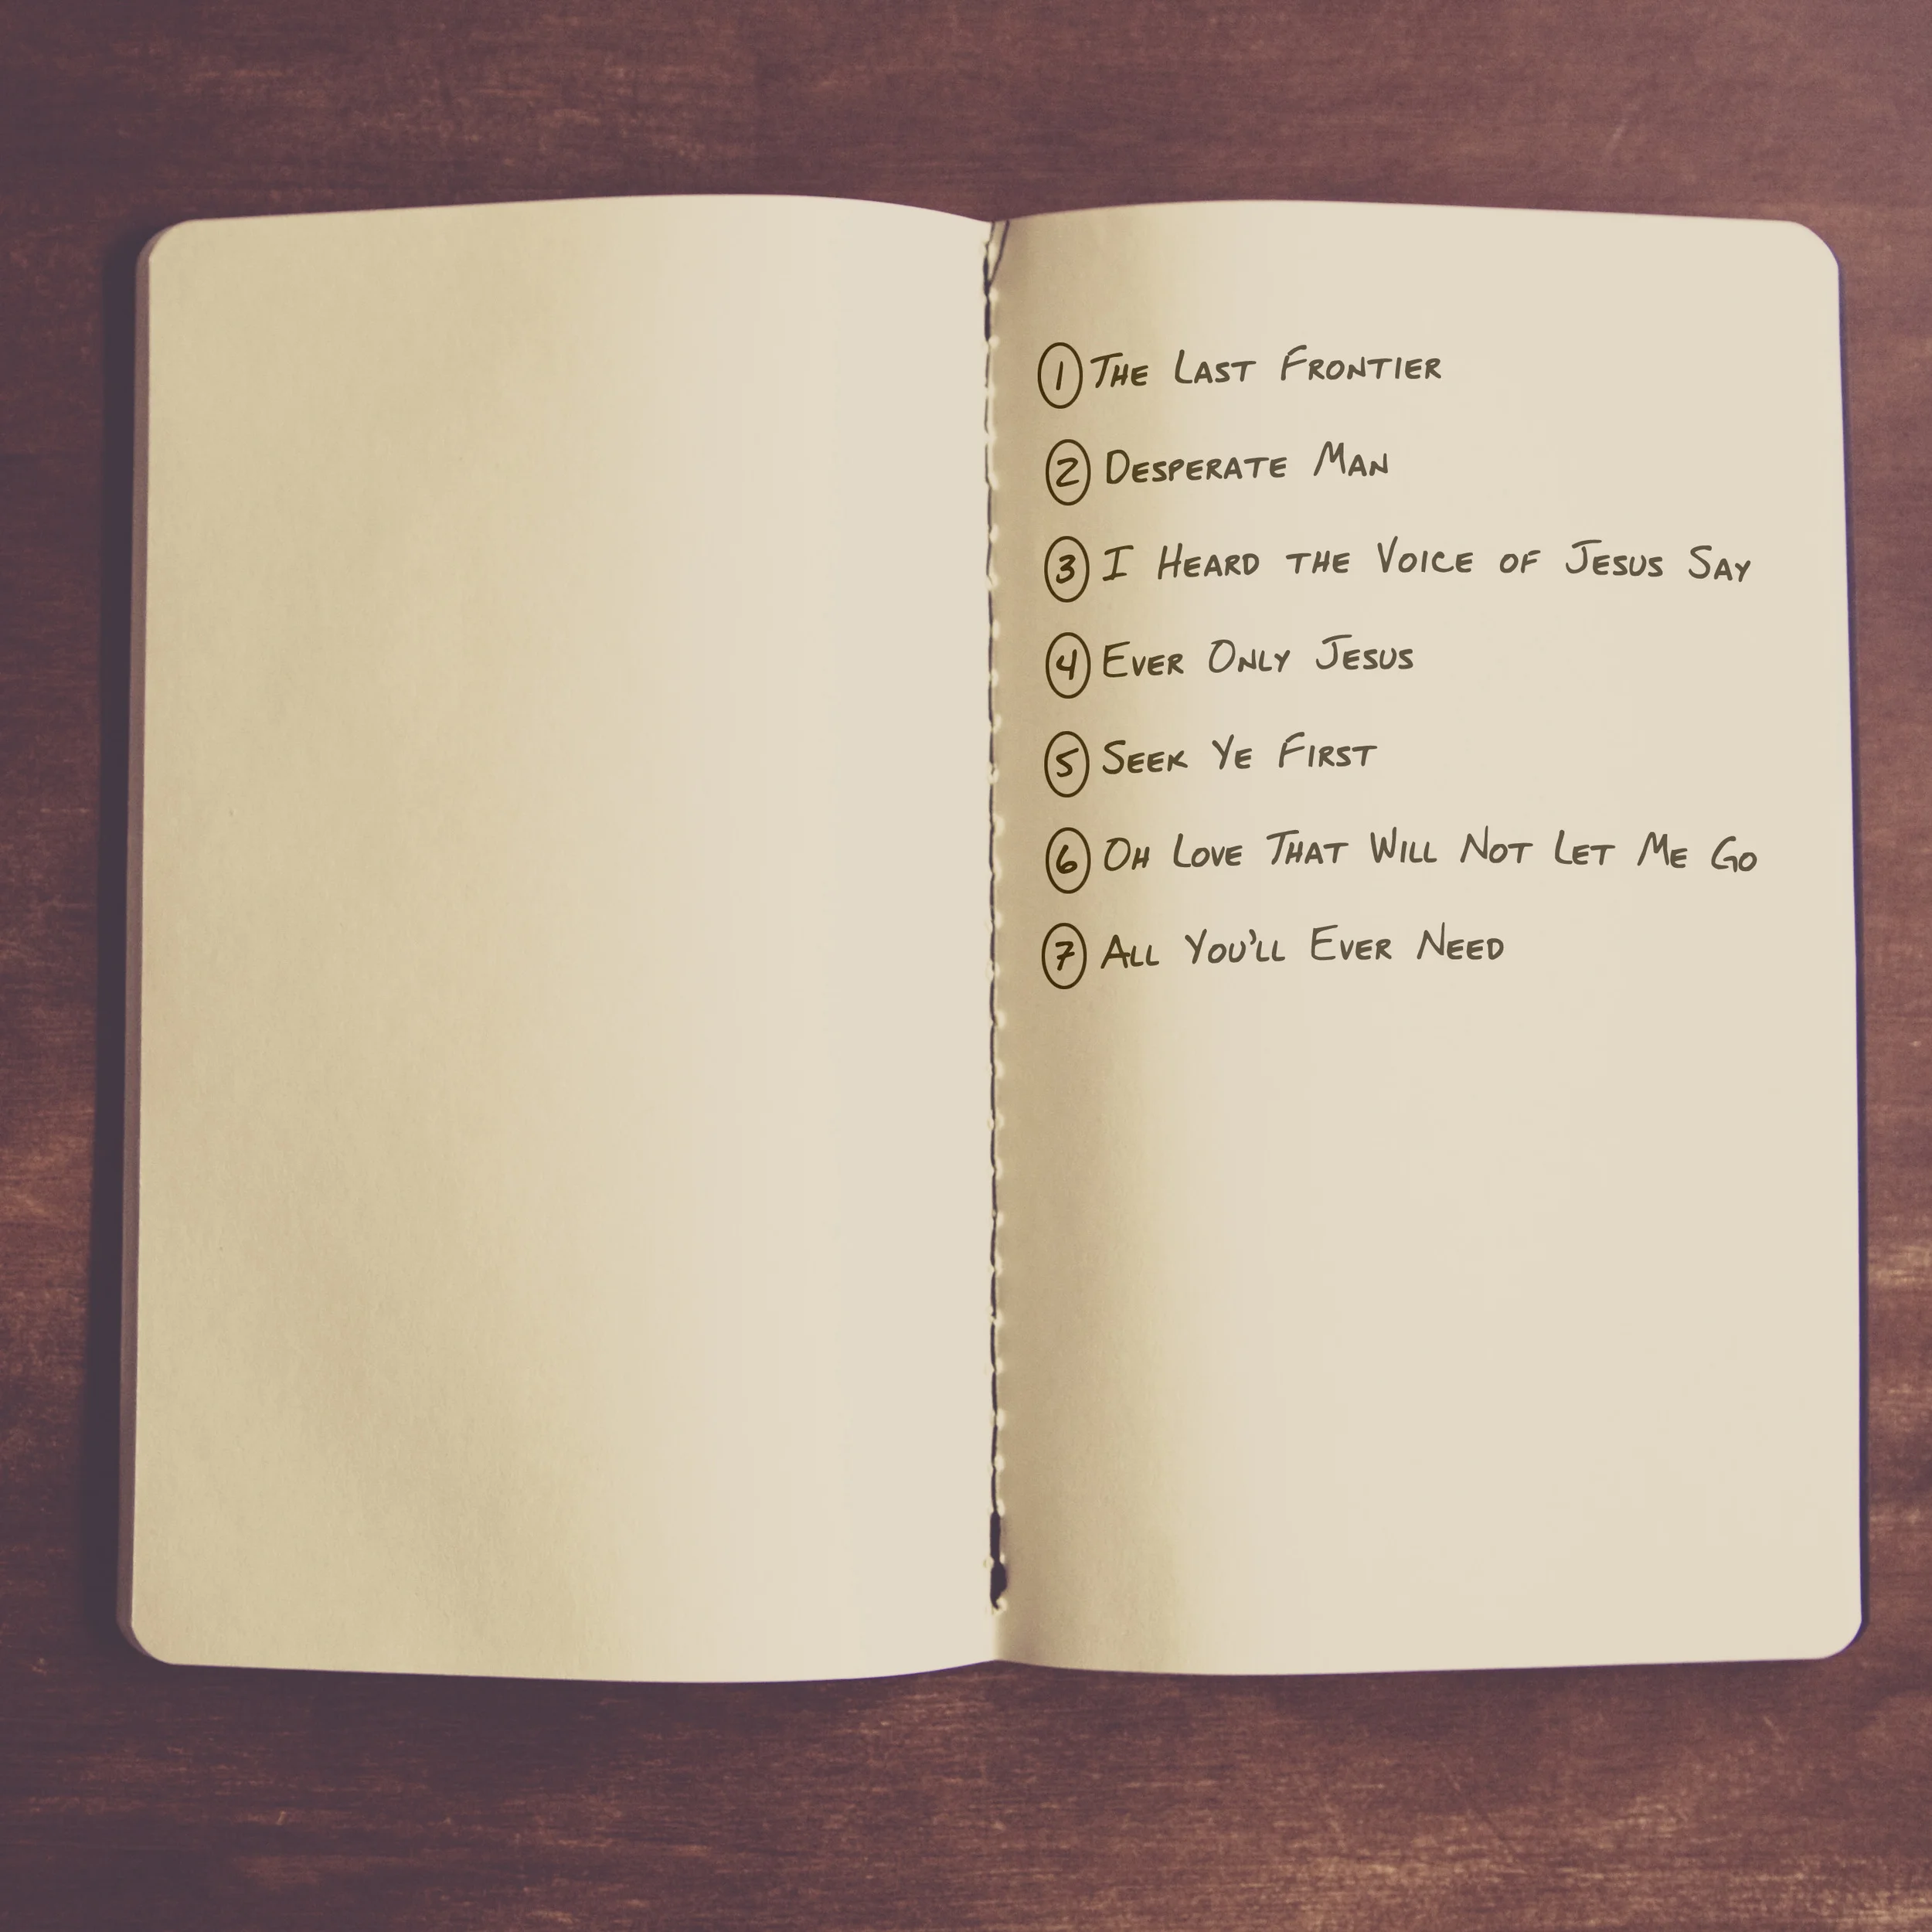 1 The Last Frontier
2 Desperate Man
3 I Heard the Voice of Jesus Say
4 Ever Only Jesus
5 Seek Ye First
6 Oh Love That Will Not Let Me Go
7 All You'll Ever Need